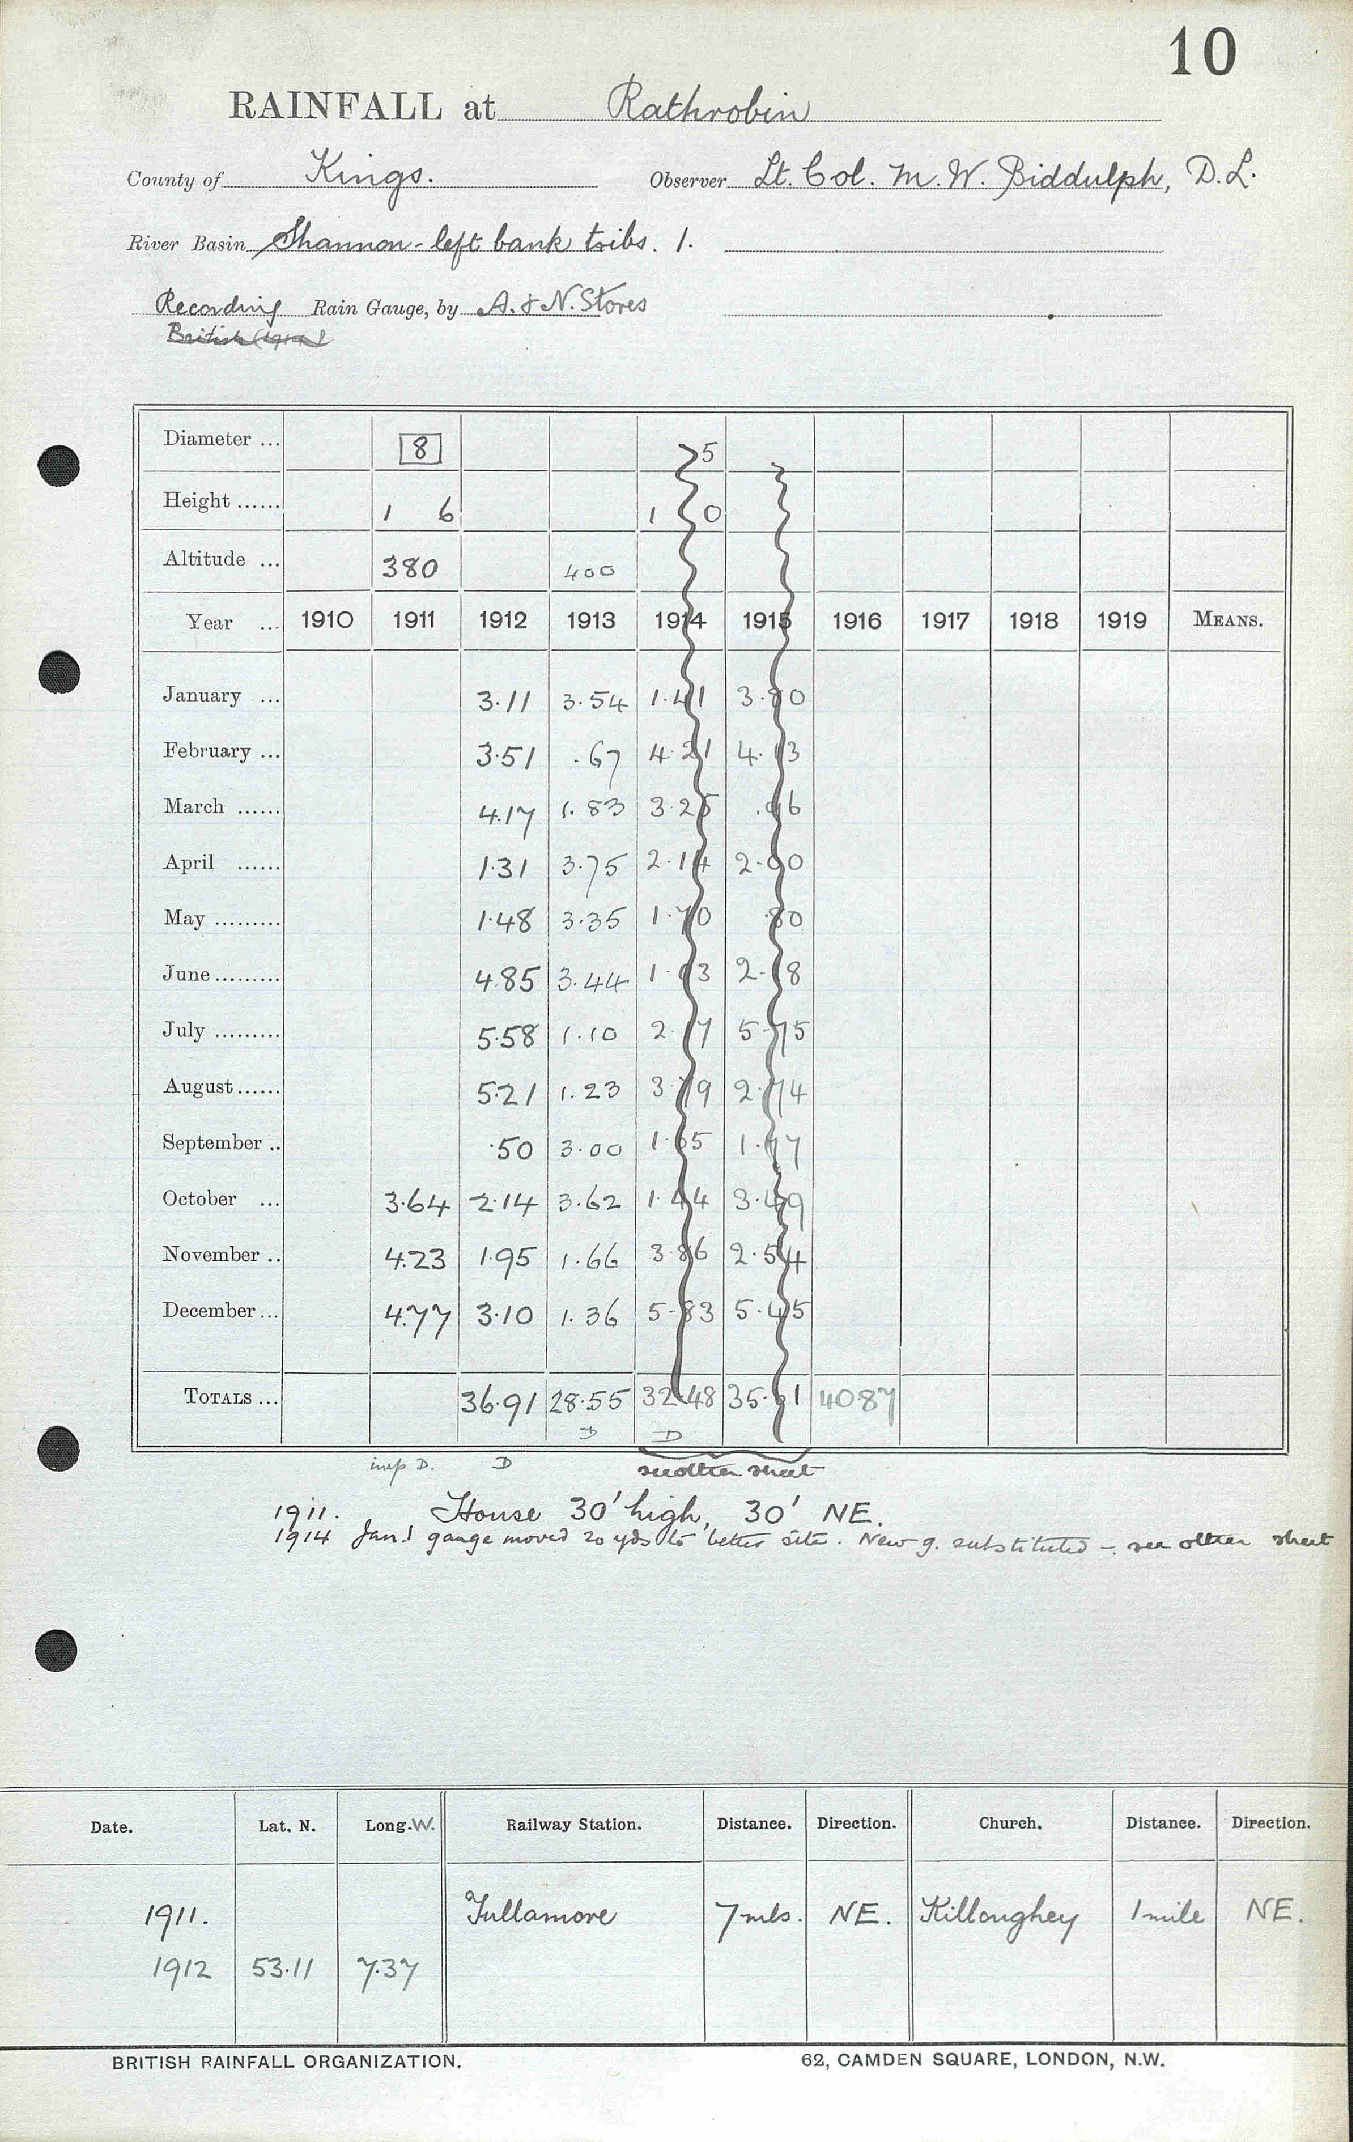 10
RAINFALL at Rathrobin
County of Kings. Observer Lt. Col. M. W. Biddulph, D.L.
River Basin Shannon - left bank tribs. 1.
Recording Rain Gauge, by A. & N. Stores
British
Diameter ... 8 5
Height ...... 1 6 1 0
Altitude ... 380 400
Year ... 1910 1911 1912 1913 1914 1915 1916 1917 1918 1919 MEANS.
January ... 3.11 3.54 1.41 3.80
February ... 3.51 .67 4.21 4.13
March ...... 4.17 1.83 3.25 .96
April ...... 1.31 3.75 2.14 2.00
May ......... 1.48 3.35 1.70 .80
June ......... 4.85 3.44 1.03 2.18
July ......... 5.58 1.10 2.17 5.75
August ...... 5.21 1.23 3.79 2.74
September .. .50 3.00 1.65 1.77
October ... 3.64 2.14 3.62 1.44 3.49
November .. 4.23 1.95 1.66 3.86 2.54
December ... 4.77 3.10 1.36 5.83 5.45
TOTALS ... 36.91 28.55 32.48 35.61 40.87
D D
imp D. D see other sheet
1911. House 30' high, 30' NE.
1914 Jan. 1 gauge moved 20 yds to better site. New g. substituted - see other sheet
Date. Lat. N. Long. W. Railway Station. Distance. Direction. Church. Distance. Direction.
1911. Tullamore 7 mls. NE. Killoughey 1 mile NE.
1912 53.11 7.37
BRITISH RAINFALL ORGANIZATION. 62, CAMDEN SQUARE, LONDON, N.W.